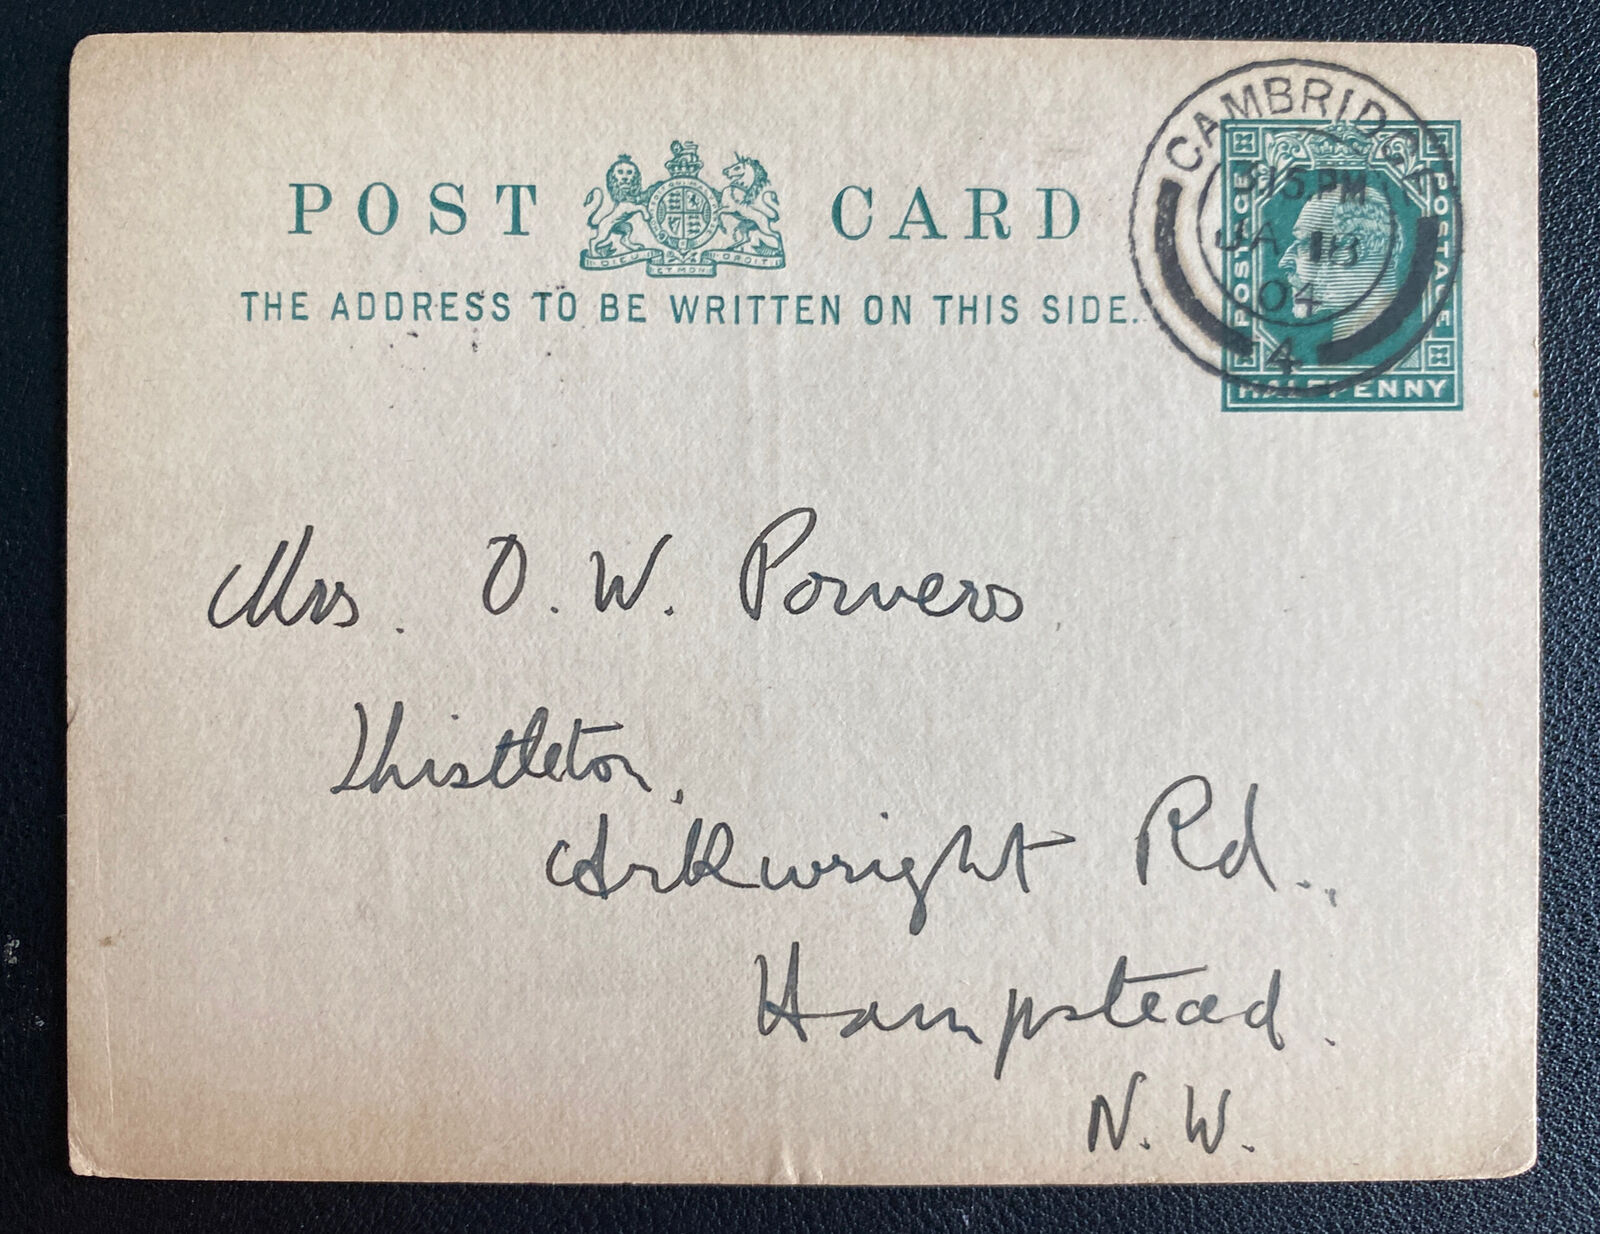 CAMBRIDGE
3.15 PM
JA 18
04
4
POSTAGE POSTAGE
HALFPENNY
POST CARD
DIEU ET MON DROIT
THE ADDRESS TO BE WRITTEN ON THIS SIDE.
Mrs. O. W. Powers
Thistleton,
Arkwright Rd.,
Hampstead.
N. W.